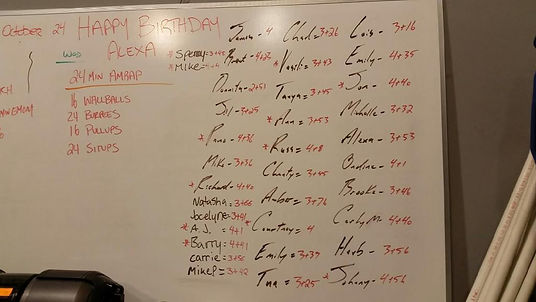 October 24 HAPPY BIRTHDAY
ALEXA
WOD
24 MIN AMRAP
16 WALLBALLS
24 BURPEES
16 PULLUPS
24 SITUPS
James - 4
* Sperry = 3+45
* Mike = 4+4
Brent - 4+27
Donnita - 2+51
Jil - 3+25
* Pano - 4+36
Mike - 3+36
* Richard - 4+40
Natasha = 3+66
Jocelyne = 3+41
* A.J. = 4+1
* Barry = 4+41
Carrie = 3+56
Mike P = 3+42
Chad = 3+26
* Vasili = 3+43
Tanya = 3+45
* Alan = 3+53
* Russ = 4+8
Charity = 3+45
Amber = 3+76
* Courtney = 4
Emily = 3+37
Tina = 3+25
Lois - 3+16
Emily - 4+35
* Jon - 4+40
Michelle - 3+32
Alexa - 3+53
Ondine - 4+1
Brooke - 3+46
Carly M. 4+40
Herb - 3+56
* Johnny - 4+56